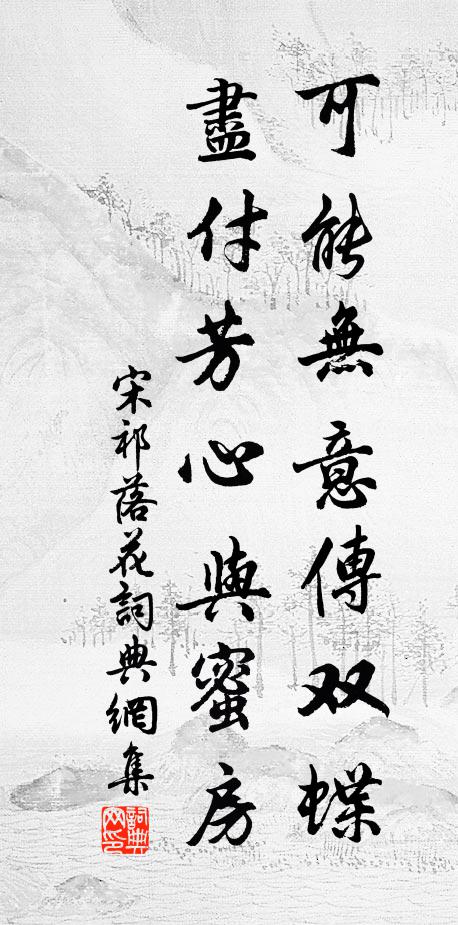 可能無意傳双蝶
盡付芳心與蜜房
宋祁落花詞典網集
詞典網印